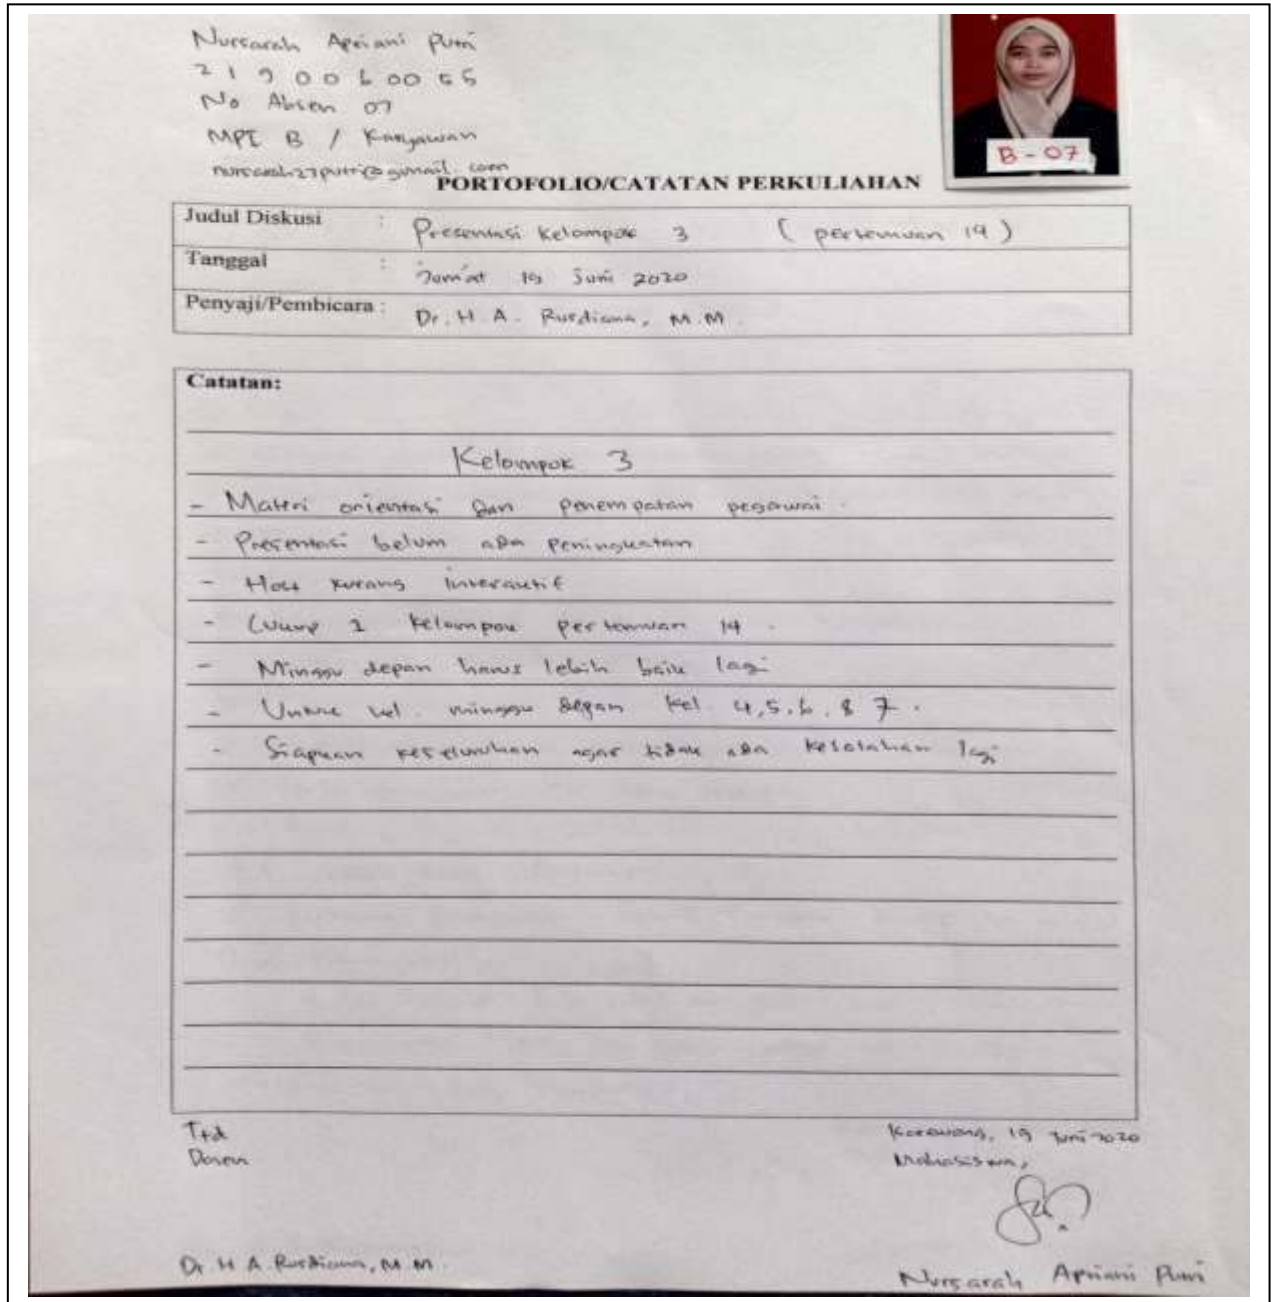 Nursarah Apriani Putri
2190060055
No Absen 07
MPI B / Karyawan
nursarah27putri@gmail.com
B-07
PORTOFOLIO/CATATAN PERKULIAHAN
Judul Diskusi : Presentasi Kelompok 3 ( pertemuan 14 )
Tanggal : Jum'at 19 Juni 2020
Penyaji/Pembicara : Dr. H. A. Rusdiana, M.M.
Catatan:
Kelompok 3
- Materi orientasi dan penempatan pegawai.
- Presentasi belum ada peningkatan
- Host kurang interaktif
- Cukup 1 kelompok pertemuan 14.
- Minggu depan harus lebih baik lagi
- Untuk kel. minggu depan kel. 4,5,6, & 7.
- Siapkan keseluruhan agar tidak ada kesalahan lagi
Ttd
Dosen
Karawang, 19 Juni 2020
Mahasiswa,
Dr. H. A. Rusdiana, M.M.
Nursarah Apriani Putri